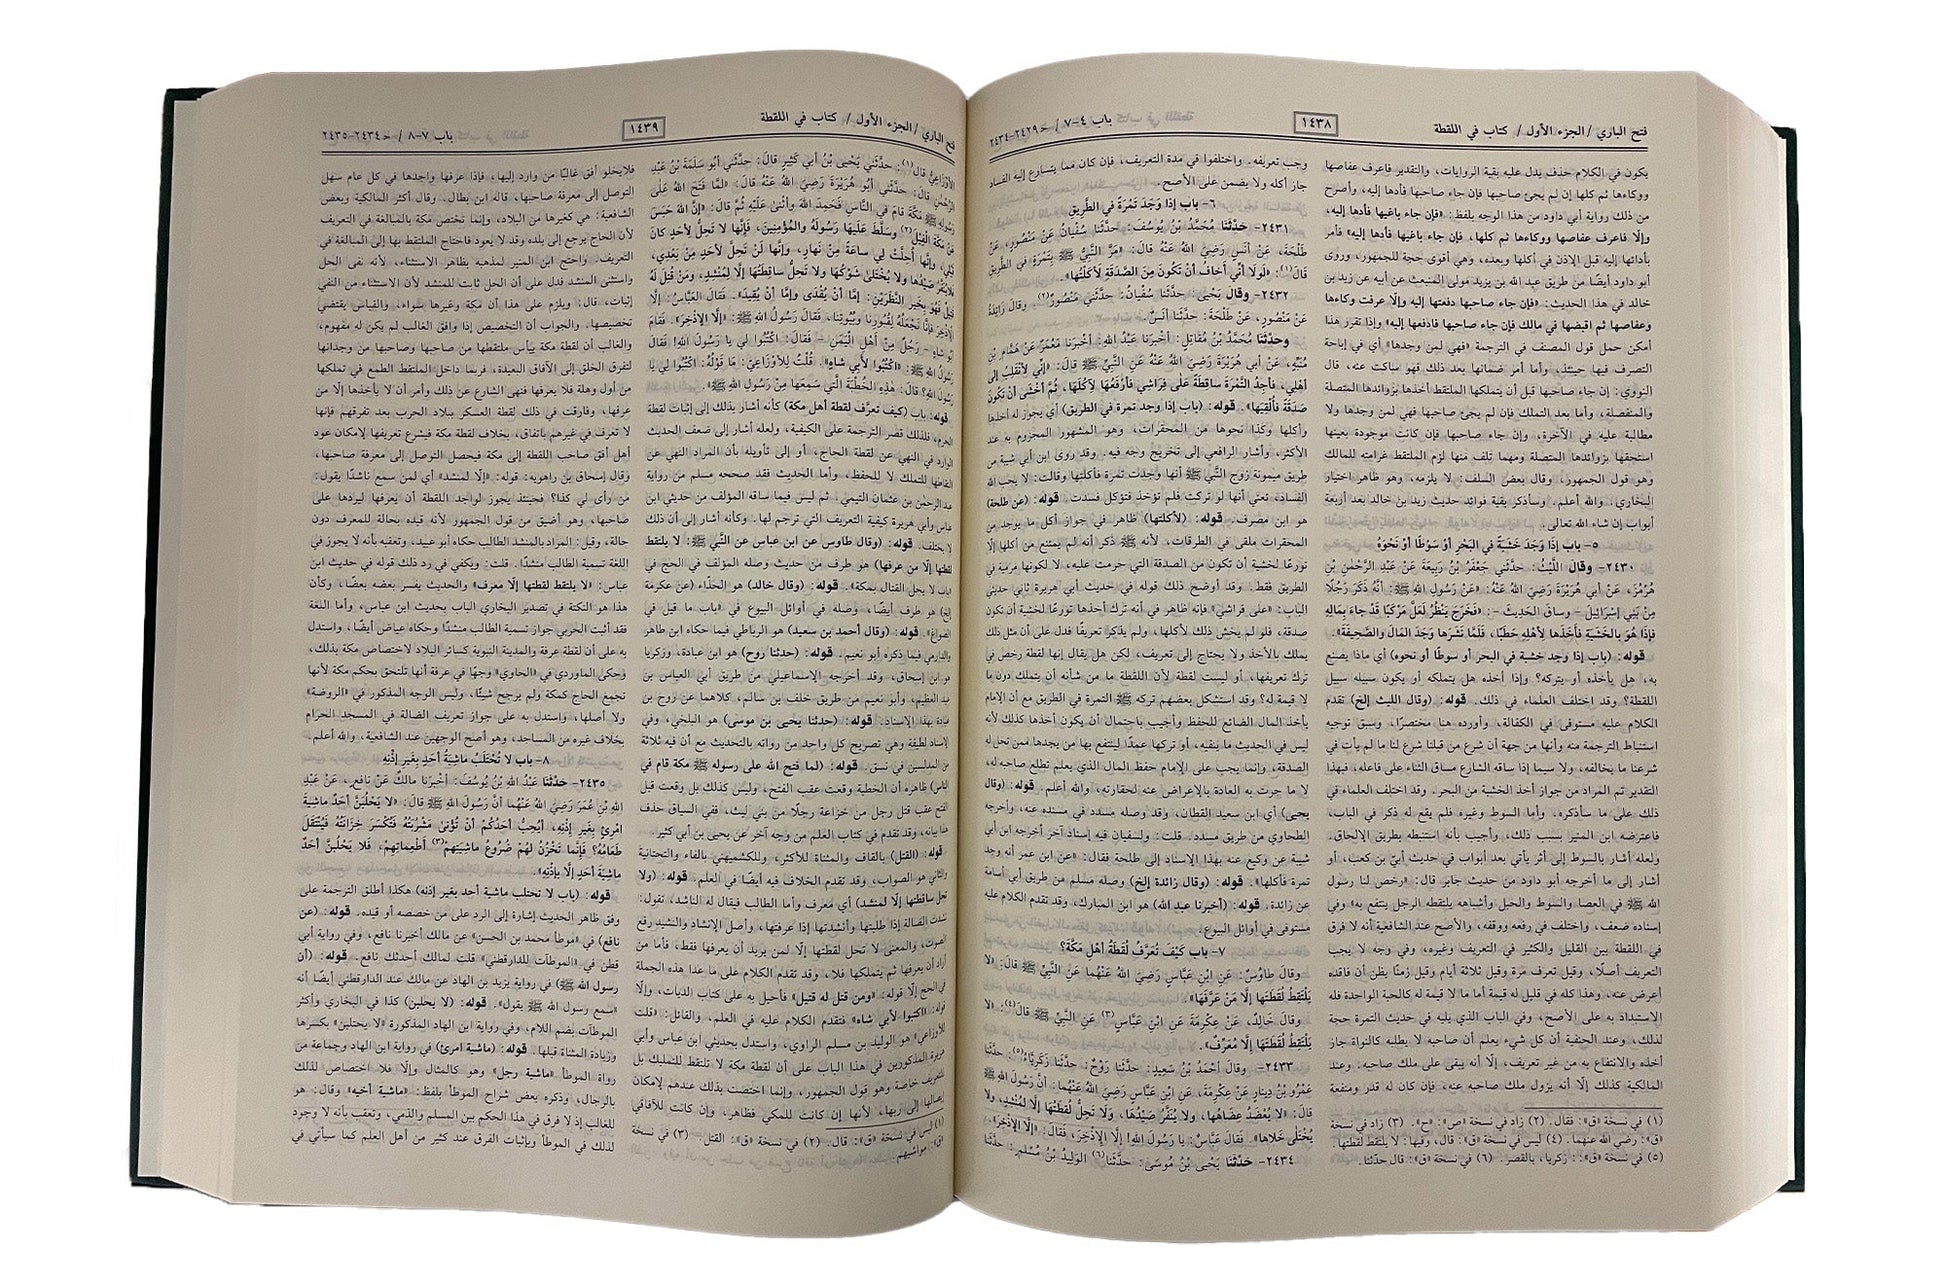 فتح الباري / الجزء الأول / كتاب في اللقطة
١٤٣٨
باب ٤-٧ / ح ٢٤٢٩-٢٤٣٤
يكون في الكلام حذف يدل عليه بقية الروايات، والتقدير فاعرف عفاصها
ووكاءها ثم كلها إن لم يجئ صاحبها فإن جاء صاحبها فأدها إليه، وأصرح
من ذلك رواية أبي داود من هذا الوجه بلفظ: «فإن جاء باغيها فأدها إليه،
وإلا فاعرف عفاصها ووكاءها ثم كلها، فإن جاء باغيها فأدها إليه» فأمر
بأدائها إليه قبل الإذن في أكلها وبعده، وهي أقوى حجة للجمهور، وروى
أبو داود أيضًا من طريق عبد الله بن يزيد مولى المنبعث عن أبيه عن زيد بن
خالد في هذا الحديث: «فإن جاء صاحبها دفعتها إليه وإلا عرفت وكاءها
وعفاصها ثم اقبضها في مالك فإن جاء صاحبها فادفعها إليه» وإذا تقرر هذا
أمكن حمل قول المصنف في الترجمة «فهي لمن وجدها» أي في إباحة
التصرف فيها حينئذ، وأما أمر ضمانها بعد ذلك فهو ساكت عنه، قال
النووي: إن جاء صاحبها قبل أن يتملكها الملتقط أخذها بزوائدها المتصلة
والمنفصلة، وأما بعد التملك فإن لم يجئ صاحبها فهي لمن وجدها ولا
مطالبة عليه في الآخرة، وإن جاء صاحبها فإن كانت موجودة بعينها
استحقها بزوائدها المتصلة ومهما تلف منها لزم الملتقط غرامته للمالك
وهو قول الجمهور، وقال بعض السلف: لا يلزمه، وهو ظاهر اختيار
البخاري، والله أعلم. وسأذكر بقية فوائد حديث زيد بن خالد بعد أربعة
أبواب إن شاء الله تعالى.
٥- باب إِذَا وَجَدَ خَشَبَةً في البَحْرِ أَوْ سَوْطًا أَوْ نَحْوَهُ
٢٤٣٠- وقَالَ اللَّيْثُ: حَدَّثَنِي جَعْفَرُ بْنُ رَبِيعَةَ عَنْ عَبْدِ الرَّحْمَنِ بْنِ
هُرْمُزَ، عَنْ أَبِي هُرَيْرَةَ رَضِيَ اللهُ عَنْهُ: «عَنْ رَسُولِ اللهِ ﷺ: أَنَّهُ ذَكَرَ رَجُلًا
مِنْ بَنِي إِسْرَائِيلَ - وساقَ الحَدِيثَ -: «فَخَرَجَ يَنْظُرُ لَعَلَّ مَرْكَبًا قَدْ جَاءَ بِمَالِهِ
فَإِذَا هُوَ بالخَشَبَةِ فأَخَذَها لِأَهْلِهِ حَطَبًا، فَلَمَّا نَشَرَها وَجَدَ المَالَ والصَّحِيفَةَ».
قوله: (باب إذا وجد خشبة في البحر أو سوطًا أو نحوه) أي ماذا يصنع
به، هل يأخذه أو يتركه؟ وإذا أخذه هل يتملكه أو يكون سبيله سبيل
اللقطة؟ وقد اختلف العلماء في ذلك. قوله: (وقال الليث إلخ) تقدم
الكلام عليه مستوفى في الكفالة، وأورده هنا مختصرًا، وسبق توجيه
استنباط الترجمة منه وأنها من جهة أن شرع من قبلنا شرع لنا ما لم يأت في
شرعنا ما يخالفه، ولا سيما إذا ساقه الشارع مساق الثناء على فاعله، فبهذا
التقدير تم المراد من جواز أخذ الخشبة من البحر. وقد اختلف العلماء في
ذلك على ما سأذكره. وأما السوط وغيره فلم يقع له ذكر في الباب،
فاعترضه ابن المنير بسبب ذلك، وأجيب بأنه استنبطه بطريق الإلحاق.
ولعله أشار بالسوط إلى أثر يأتي بعد أبواب في حديث أبيّ بن كعب، أو
أشار إلى ما أخرجه أبو داود من حديث جابر قال: «رخص لنا رسول
الله ﷺ في العصا والسوط والحبل وأشباهه يلتقطه الرجل ينتفع به» وفي
إسناده ضعف، واختلف في رفعه ووقفه، والأصح عند الشافعية أنه لا فرق
في اللقطة بين القليل والكثير في التعريف وغيره، وفي وجه لا يجب
التعريف أصلًا، وقيل تعرف مرة وقيل ثلاثة أيام وقيل زمنًا يظن أن فاقده
أعرض عنه، وهذا كله في قليل له قيمة أما ما لا قيمة له كالحبة الواحدة فله
الاستبداد به على الأصح، وفي الباب الذي يليه في حديث التمرة حجة
لذلك، وعند الحنفية أن كل شيء يعلم أن صاحبه لا يطلبه كالنواة جاز
أخذه والانتفاع به من غير تعريف، إلا أنه يبقى على ملك صاحبه. وعند
المالكية كذلك إلا أنه يزول ملك صاحبه عنه، فإن كان له قدر ومنفعة
(١) في نسخة «ق»: فقال. (٢) زاد في نسخة «ص»: «ح». (٣) زاد في نسخة
«ق»: رضي الله عنهما. (٤) ليس في نسخة «ق»: قال، وفيها: لا يلتقط لقطتها
(٥) في نسخة «ق»: زكريا، بالقصر. (٦) في نسخة «ق»: قال حدثنا.
وجب تعريفه. واختلفوا في مدة التعريف، فإن كان مما يتسارع إليه الفساد
جاز أكله ولا يضمن على الأصح.
٦- باب إِذَا وَجَدَ تَمْرَةً في الطَّرِيقِ
٢٤٣١- حَدَّثَنَا مُحَمَّدُ بْنُ يُوسُفَ: حَدَّثَنَا سُفْيَانُ عَنْ مَنْصُورٍ، عَنْ
طَلْحَةَ، عَنْ أَنَسٍ رَضِيَ اللهُ عَنْهُ قَالَ: «مَرَّ النَّبِيُّ ﷺ بِتَمْرَةٍ في الطَّرِيقِ
قَالَ(١): «لَوْلَا أَنِّي أَخَافُ أَنْ تَكُونَ مِنَ الصَّدَقَةِ لأَكَلْتُهَا».
٢٤٣٢- وقَالَ يَحْيَى: حَدَّثَنَا سُفْيَانُ: حَدَّثَنِي مَنْصُورٌ(٢) وقَالَ زَائِدَةُ
عَنْ مَنْصُورٍ، عَنْ طَلْحَةَ: حَدَّثَنَا أَنَسٌ.
وحَدَّثَنَا مُحَمَّدُ بْنُ مُقَاتِلٍ: أَخْبَرَنَا عَبْدُ اللهِ: أَخْبَرَنَا مَعْمَرٌ عَنْ هَمَّامِ بْنِ
مُنَبِّهٍ، عَنْ أَبِي هُرَيْرَةَ رَضِيَ اللهُ عَنْهُ عَنِ النَّبِيِّ ﷺ قَالَ: «إِنِّي لأَنْقَلِبُ إلى
أَهْلِي، فَأَجِدُ التَّمْرَةَ ساقِطَةً عَلَى فِرَاشِي فأَرْفَعُهَا لآكُلَهَا، ثُمَّ أَخْشَى أَنْ تَكُونَ
صَدَقَةً فأُلْقِيَها». قوله: (باب إذا وجد تمرة في الطريق) أي يجوز له أخذها
وأكلها وكذا نحوها من المحقرات، وهو المشهور المجزوم به عند
الأكثر، وأشار الرافعي إلى تخريج وجه فيه. وقد روى ابن أبي شيبة من
طريق ميمونة زوج النبي ﷺ أنها وجدت تمرة فأكلتها وقالت: لا يحب الله
الفساد، تعني أنها لو تركت فلم تؤخذ فتؤكل فسدت. قوله: (عن طلحة)
هو ابن مصرف. قوله: (لأكلتها) ظاهر في جواز أكل ما يوجد من
المحقرات ملقى في الطرقات، لأنه ﷺ ذكر أنه لم يمتنع من أكلها إلا
تورعًا لخشية أن تكون من الصدقة التي حرمت عليه، لا لكونها مرمية في
الطريق فقط. وقد أوضح ذلك قوله في حديث أبي هريرة ثاني حديثي
الباب: «على فراشي» فإنه ظاهر في أنه ترك أخذها تورعًا لخشية أن تكون
صدقة، فلو لم يخش ذلك لأكلها، ولم يذكر تعريفًا فدل على أن مثل ذلك
يملك بالأخذ ولا يحتاج إلى تعريف، لكن هل يقال إنها لقطة رخص في
ترك تعريفها، أو ليست لقطة لأن اللقطة ما من شأنه أن يتملك دون ما
لا قيمة له؟ وقد استشكل بعضهم تركه ﷺ التمرة في الطريق مع أن الإمام
يأخذ المال الضائع للحفظ وأجيب باحتمال أن يكون أخذها كذلك لأنه
ليس في الحديث ما ينفيه، أو تركها عمدًا لينتفع بها من يجدها ممن تحل له
الصدقة، وإنما يجب على الإمام حفظ المال الذي يعلم تطلع صاحبه له،
لا ما جرت به العادة بالإعراض عنه لحقارته، والله أعلم. قوله: (وقال
يحيى) أي ابن سعيد القطان، وقد وصله مسدد في مسنده عنه، وأخرجه
الطحاوي من طريق مسدد. قلت: ولسفيان فيه إسناد آخر أخرجه ابن أبي
شيبة عن وكيع عنه بهذا الإسناد إلى طلحة فقال: «عن ابن عمر أنه وجد
تمرة فأكلها». قوله: (وقال زائدة إلخ) وصله مسلم من طريق أبي أسامة
عن زائدة. قوله: (أخبرنا عبد الله) هو ابن المبارك، وقد تقدم الكلام عليه
مستوفى في أوائل البيوع.
٧- باب كَيْفَ تُعَرَّفُ لُقَطَةُ أَهْلِ مَكَّةَ؟
وقَالَ طاوُسٌ: عَنِ ابْنِ عَبَّاسٍ رَضِيَ اللهُ عَنْهُمَا عَنِ النَّبِيِّ ﷺ قَالَ: «لا
يَلْتَقِطُ لُقَطَتَهَا إِلَّا مَنْ عَرَّفَهَا».
وقَالَ خالِدٌ، عَنْ عِكْرِمَةَ عَنِ ابْنِ عَبَّاسٍ(٣) عَنِ النَّبِيِّ ﷺ قَالَ(٤): «لا
يَلْتَقِطُ لُقَطَتَهَا إِلَّا مُعَرِّفٌ».
٢٤٣٣- وقَالَ أَحْمَدُ بْنُ سَعِيدٍ: حَدَّثَنَا رَوْحٌ: حَدَّثَنَا زَكَرِيَّاءُ(٥): حَدَّثَنَا
عَمْرُو بْنُ دِينَارٍ عَنْ عِكْرِمَةَ، عَنِ ابْنِ عَبَّاسٍ رَضِيَ اللهُ عَنْهُمَا: أَنَّ رَسُولَ اللهِ ﷺ
قَالَ: «لا يُعْضَدُ عِضَاهُهَا، ولا يُنَفَّرُ صَيْدُهَا، وَلَا تَحِلُّ لُقَطَتُهَا إِلَّا لِمُنْشِدٍ، ولا
يُخْتَلَى خَلاها». فَقَالَ عَبَّاسٌ: يا رَسُولَ اللهِ! إِلَّا الإِذْخِرَ، فَقَالَ: «إِلَّا الإِذْخِرَ».
٢٤٣٤- حَدَّثَنَا يَحْيَى بْنُ مُوسَى: حَدَّثَنَا(٦) الوَلِيدُ بْنُ مُسْلِمٍ: حَدَّثَنَا
فتح الباري / الجزء الأول / كتاب في اللقطة
١٤٣٩
باب ٧-٨ / ح ٢٤٣٤-٢٤٣٥
الأَوْزَاعِيُّ قال(١): حَدَّثَنِي يَحْيَى بْنُ أَبِي كَثِيرٍ قَالَ: حَدَّثَنِي أَبُو سَلَمَةَ بْنُ عَبْدِ
الرَّحْمَنِ قَالَ: حَدَّثَنِي أَبُو هُرَيْرَةَ رَضِيَ اللهُ عَنْهُ قَالَ: «لَمَّا فَتَحَ اللهُ عَلَى
رَسُولِهِ ﷺ مَكَّةَ قَامَ في النَّاسِ فَحَمِدَ اللهَ وأَثْنَى عَلَيْهِ ثُمَّ قَالَ: «إِنَّ اللهَ حَبَسَ
عَنْ مَكَّةَ الفِيلَ(٢) وسَلَّطَ عَلَيْهَا رَسُولَهُ والمُؤْمِنِينَ، فَإِنَّهَا لا تَحِلُّ لأَحَدٍ كَانَ
قَبْلِي، وإِنَّها أُحِلَّتْ لِي ساعَةً مِنْ نَهَارٍ، وإِنَّها لَنْ تَحِلَّ لأَحَدٍ مِنْ بَعْدِي،
فَلا يُنَفَّرُ صَيْدُهَا ولا يُخْتَلَى شَوْكُهَا ولا تَحِلُّ ساقِطَتُهَا إِلَّا لِمُنْشِدٍ، ومَنْ قُتِلَ لَهُ
قَتِيلٌ فَهُوَ بِخَيْرِ النَّظَرَيْنِ: إِمَّا أَنْ يُفْدَى وإِمَّا أَنْ يُقِيدَ». فَقَالَ العَبَّاسُ: إِلَّا
الإِذْخِرَ فَإِنَّا نَجْعَلُهُ لِقُبُورِنَا وبُيُوتِنَا، فَقَالَ رَسُولُ اللهِ ﷺ: «إِلَّا الإِذْخِرَ»، فَقَامَ
أَبُو شَاهٍ - رَجُلٌ مِنْ أَهْلِ اليَمَنِ - فَقَالَ: اكْتُبُوا لِي يا رَسُولَ اللهِ! فَقَالَ
رَسُولُ اللهِ ﷺ: «اكْتُبُوا لِأَبِي شاهٍ». قُلْتُ لِلأَوْزَاعِيِّ: مَا قَوْلُهُ: اكْتُبُوا لِي يا
رَسُولَ اللهِ؟ قَالَ: هَذِهِ الخُطْبَةَ الَّتِي سَمِعَهَا مِنْ رَسُولِ اللهِ ﷺ».
قوله: باب (كيف تعرَّف لقطة أهل مكة) كأنه أشار بذلك إلى إثبات لقطة
الحرم، فلذلك قصر الترجمة على الكيفية، ولعله أشار إلى ضعف الحديث
الوارد في النهي عن لقطة الحاج، أو إلى تأويله بأن المراد النهي عن
التقاطها للتملك لا للحفظ، وأما الحديث فقد صححه مسلم من رواية
عبد الرحمن بن عثمان التيمي. ثم ليس فيما ساقه المؤلف من حديثي ابن
عباس وأبي هريرة كيفية التعريف التي ترجم لها. وكأنه أشار إلى أن ذلك
لا يختلف. قوله: (وقال طاوس عن ابن عباس عن النَّبي ﷺ: لا يلتقط
لقطتها إلا من عرفها) هو طرف من حديث وصله المؤلف في الحج في
«باب لا يحل القتال بمكة». قوله: (وقال خالد) هو الحذّاء (عن عكرمة
إلخ) هو طرف أيضًا، وصله في أوائل البيوع في «باب ما قيل في
الصواغ». قوله: (وقال أحمد بن سعيد) هو الرباطي فيما حكاه ابن طاهر
والدارمي فيما ذكره أبو نعيم. قوله: (حدثنا روح) هو ابن عبادة، وزكريا
هو ابن إسحاق، وقد أخرجه الإسماعيلي من طريق أبي العباس بن
عبد العظيم، وأبو نعيم من طريق خلف بن سالم، كلاهما عن روح بن
عبادة بهذا الإسناد. قوله: (حدثنا يحيى بن موسى) هو البلخي، وفي
الإسناد لطيفة وهي تصريح كل واحد من رواته بالتحديث مع أن فيه ثلاثة
من المدلسين في نسق. قوله: (لما فتح الله على رسوله ﷺ مكة قام في
الناس) ظاهره أن الخطبة وقعت عقب الفتح، وليس كذلك بل وقعت قبل
الفتح عقب قتل رجل من خزاعة رجلًا من بني ليث، ففي السياق حذف
هذا بيانه، وقد تقدم في كتاب العلم من وجه آخر عن يحيى بن أبي كثير.
قوله: (القتل) بالقاف والمثناة للأكثر، وللكشميهني بالفاء والتحتانية
والثاني هو الصواب، وقد تقدم الخلاف فيه أيضًا في العلم. قوله: (ولا
تحل ساقطتها إلا لمنشد) أي معرف وأما الطالب فيقال له الناشد، تقول:
نشدت الضالة إذا طلبتها وأنشدتها إذا عرفتها، وأصل الإنشاد والنشيد رفع
الصوت، والمعنى لا تحل لقطتها إلا لمن يريد أن يعرفها فقط، فأما من
أراد أن يعرفها ثم يتملكها فلا، وقد تقدم الكلام على ما عدا هذه الجملة
في الحج إلا قوله: «ومن قتل له قتيل» فأحيل به على كتاب الديات، وإلا
قوله: «اكتبوا لأبي شاه» فتقدم الكلام عليه في العلم، والقائل: «قلت
للأوزاعي» هو الوليد بن مسلم الراوي، واستدل بحديثي ابن عباس وأبي
هريرة المذكورين في هذا الباب على أن لقطة مكة لا تلتقط للتمليك بل
للتعريف خاصة وهو قول الجمهور، وإنما اختصت بذلك عندهم لإمكان
إيصالها إلى ربها، لأنها إن كانت للمكي فظاهر، وإن كانت للآفاقي
(١) ليس في نسخة «ق»: قال. (٢) في نسخة «ق»: القتل. (٣) في نسخة
«ق»: مواشيهم.
فلا يخلو أفق غالبًا من وارد إليها، فإذا عرفها واجدها في كل عام سهل
التوصل إلى معرفة صاحبها، قاله ابن بطال. وقال أكثر المالكية وبعض
الشافعية: هي كغيرها من البلاد، وإنما تختص مكة بالمبالغة في التعريف
لأن الحاج يرجع إلى بلده وقد لا يعود فاحتاج الملتقط بها إلى المبالغة في
التعريف. واحتج ابن المنير لمذهبه بظاهر الاستثناء، لأنه نفى الحل
واستثنى المنشد فدل على أن الحل ثابت للمنشد لأن الاستثناء من النفي
إثبات، قال: ويلزم على هذا أن مكة وغيرها سواء، والقياس يقتضي
تخصيصها. والجواب أن التخصيص إذا وافق الغالب لم يكن له مفهوم،
والغالب أن لقطة مكة ييأس ملتقطها من صاحبها وصاحبها من وجدانها
لتفرق الخلق إلى الآفاق البعيدة، فربما داخل الملتقط الطمع في تملكها
من أول وهلة فلا يعرفها فنهى الشارع عن ذلك وأمر أن لا يأخذها إلا من
عرفها، وفارقت في ذلك لقطة العسكر ببلاد الحرب بعد تفرقهم فإنها
لا تعرف في غيرهم باتفاق، بخلاف لقطة مكة فيشرع تعريفها لإمكان عود
أهل أفق صاحب اللقطة إلى مكة فيحصل التوصل إلى معرفة صاحبها،
وقال إسحاق بن راهويه: قوله: «إلا لمنشد» أي لمن سمع ناشدًا يقول:
من رأى لي كذا؟ فحينئذ يجوز لواجد اللقطة أن يعرفها ليردها على
صاحبها، وهو أضيق من قول الجمهور لأنه قيده بحالة للمعرف دون
حالة، وقيل: المراد بالمنشد الطالب حكاه أبو عبيد، وتعقبه بأنه لا يجوز في
اللغة تسمية الطالب منشدًا. قلت: ويكفي في رد ذلك قوله في حديث ابن
عباس: «لا يلتقط لقطتها إلا معرف» والحديث يفسر بعضه بعضًا، وكأن
هذا هو النكتة في تصدير البخاري الباب بحديث ابن عباس، وأما اللغة
فقد أثبت الحربي جواز تسمية الطالب منشدًا وحكاه عياض أيضًا، واستدل
به على أن لقطة عرفة والمدينة النبوية كسائر البلاد لاختصاص مكة بذلك،
وحكى الماوردي في «الحاوي» وجهًا في عرفة أنها تلتحق بحكم مكة لأنها
تجمع الحاج كمكة ولم يرجح شيئًا، وليس الوجه المذكور في «الروضة»
ولا أصلها، واستدل به على جواز تعريف الضالة في المسجد الحرام
بخلاف غيره من المساجد، وهو أصح الوجهين عند الشافعية، والله أعلم.
٨- باب لا تُحْتَلَبُ ماشِيَةُ أَحَدٍ بِغَيرِ إِذْنِهِ
٢٤٣٥- حَدَّثَنَا عَبْدُ اللهِ بْنُ يُوسُفَ: أَخْبَرَنَا مالكٌ عَنْ نافِعٍ، عَنْ عَبْدِ
اللهِ بْنِ عُمَرَ رَضِيَ اللهُ عَنْهُمَا أَنَّ رَسُولَ اللهِ ﷺ قَالَ: «لا يَحْلُبَنَّ أَحَدٌ ماشِيَةَ
امْرِئٍ بِغَيرِ إِذْنِهِ، أَيُحِبُّ أَحَدُكُمْ أَنْ تُؤْتَى مَشْرُبَتُهُ فَتُكْسَرَ خِزَانَتُهُ فَيُنْتَقَلَ
طَعَامُهُ؟ فَإِنَّما تَخْزُنُ لَهُمْ ضُرُوعُ ماشِيَتِهِمْ(٣) أَطْعِماتِهِمْ، فَلا يَحْلُبَنَّ أَحَدٌ
ماشِيَةَ أَحَدٍ إِلَّا بِإِذْنِهِ».
قوله: (باب لا تحتلب ماشية أحد بغير إذنه) هكذا أطلق الترجمة على
وفق ظاهر الحديث إشارة إلى الرد على من خصصه أو قيده. قوله: (عن
نافع) في «موطأ محمد بن الحسن» عن مالك أخبرنا نافع، وفي رواية أبي
قطن في «الموطآت للدارقطني» قلت لمالك أحدثك نافع. قوله: (أن
رسول الله ﷺ) في رواية يزيد بن الهاد عن مالك عند الدارقطني أيضًا أنه
«سمع رسول الله ﷺ يقول». قوله: (لا يحلبن) كذا في البخاري وأكثر
الموطآت بضم اللام، وفي رواية ابن الهاد المذكورة «لا يحتلبن» بكسرها
وزيادة المثناة قبلها. قوله: (ماشية امرئ) في رواية ابن الهاد وجماعة من
رواة الموطأ «ماشية رجل» وهو كالمثال وإلا فلا اختصاص لذلك
بالرجال، وذكره بعض شراح الموطأ بلفظ: «ماشية أخيه» وقال: هو
للغالب إذ لا فرق في هذا الحكم بين المسلم والذمي، وتعقب بأنه لا وجود
لذلك في الموطأ وبإثبات الفرق عند كثير من أهل العلم كما سيأتي في